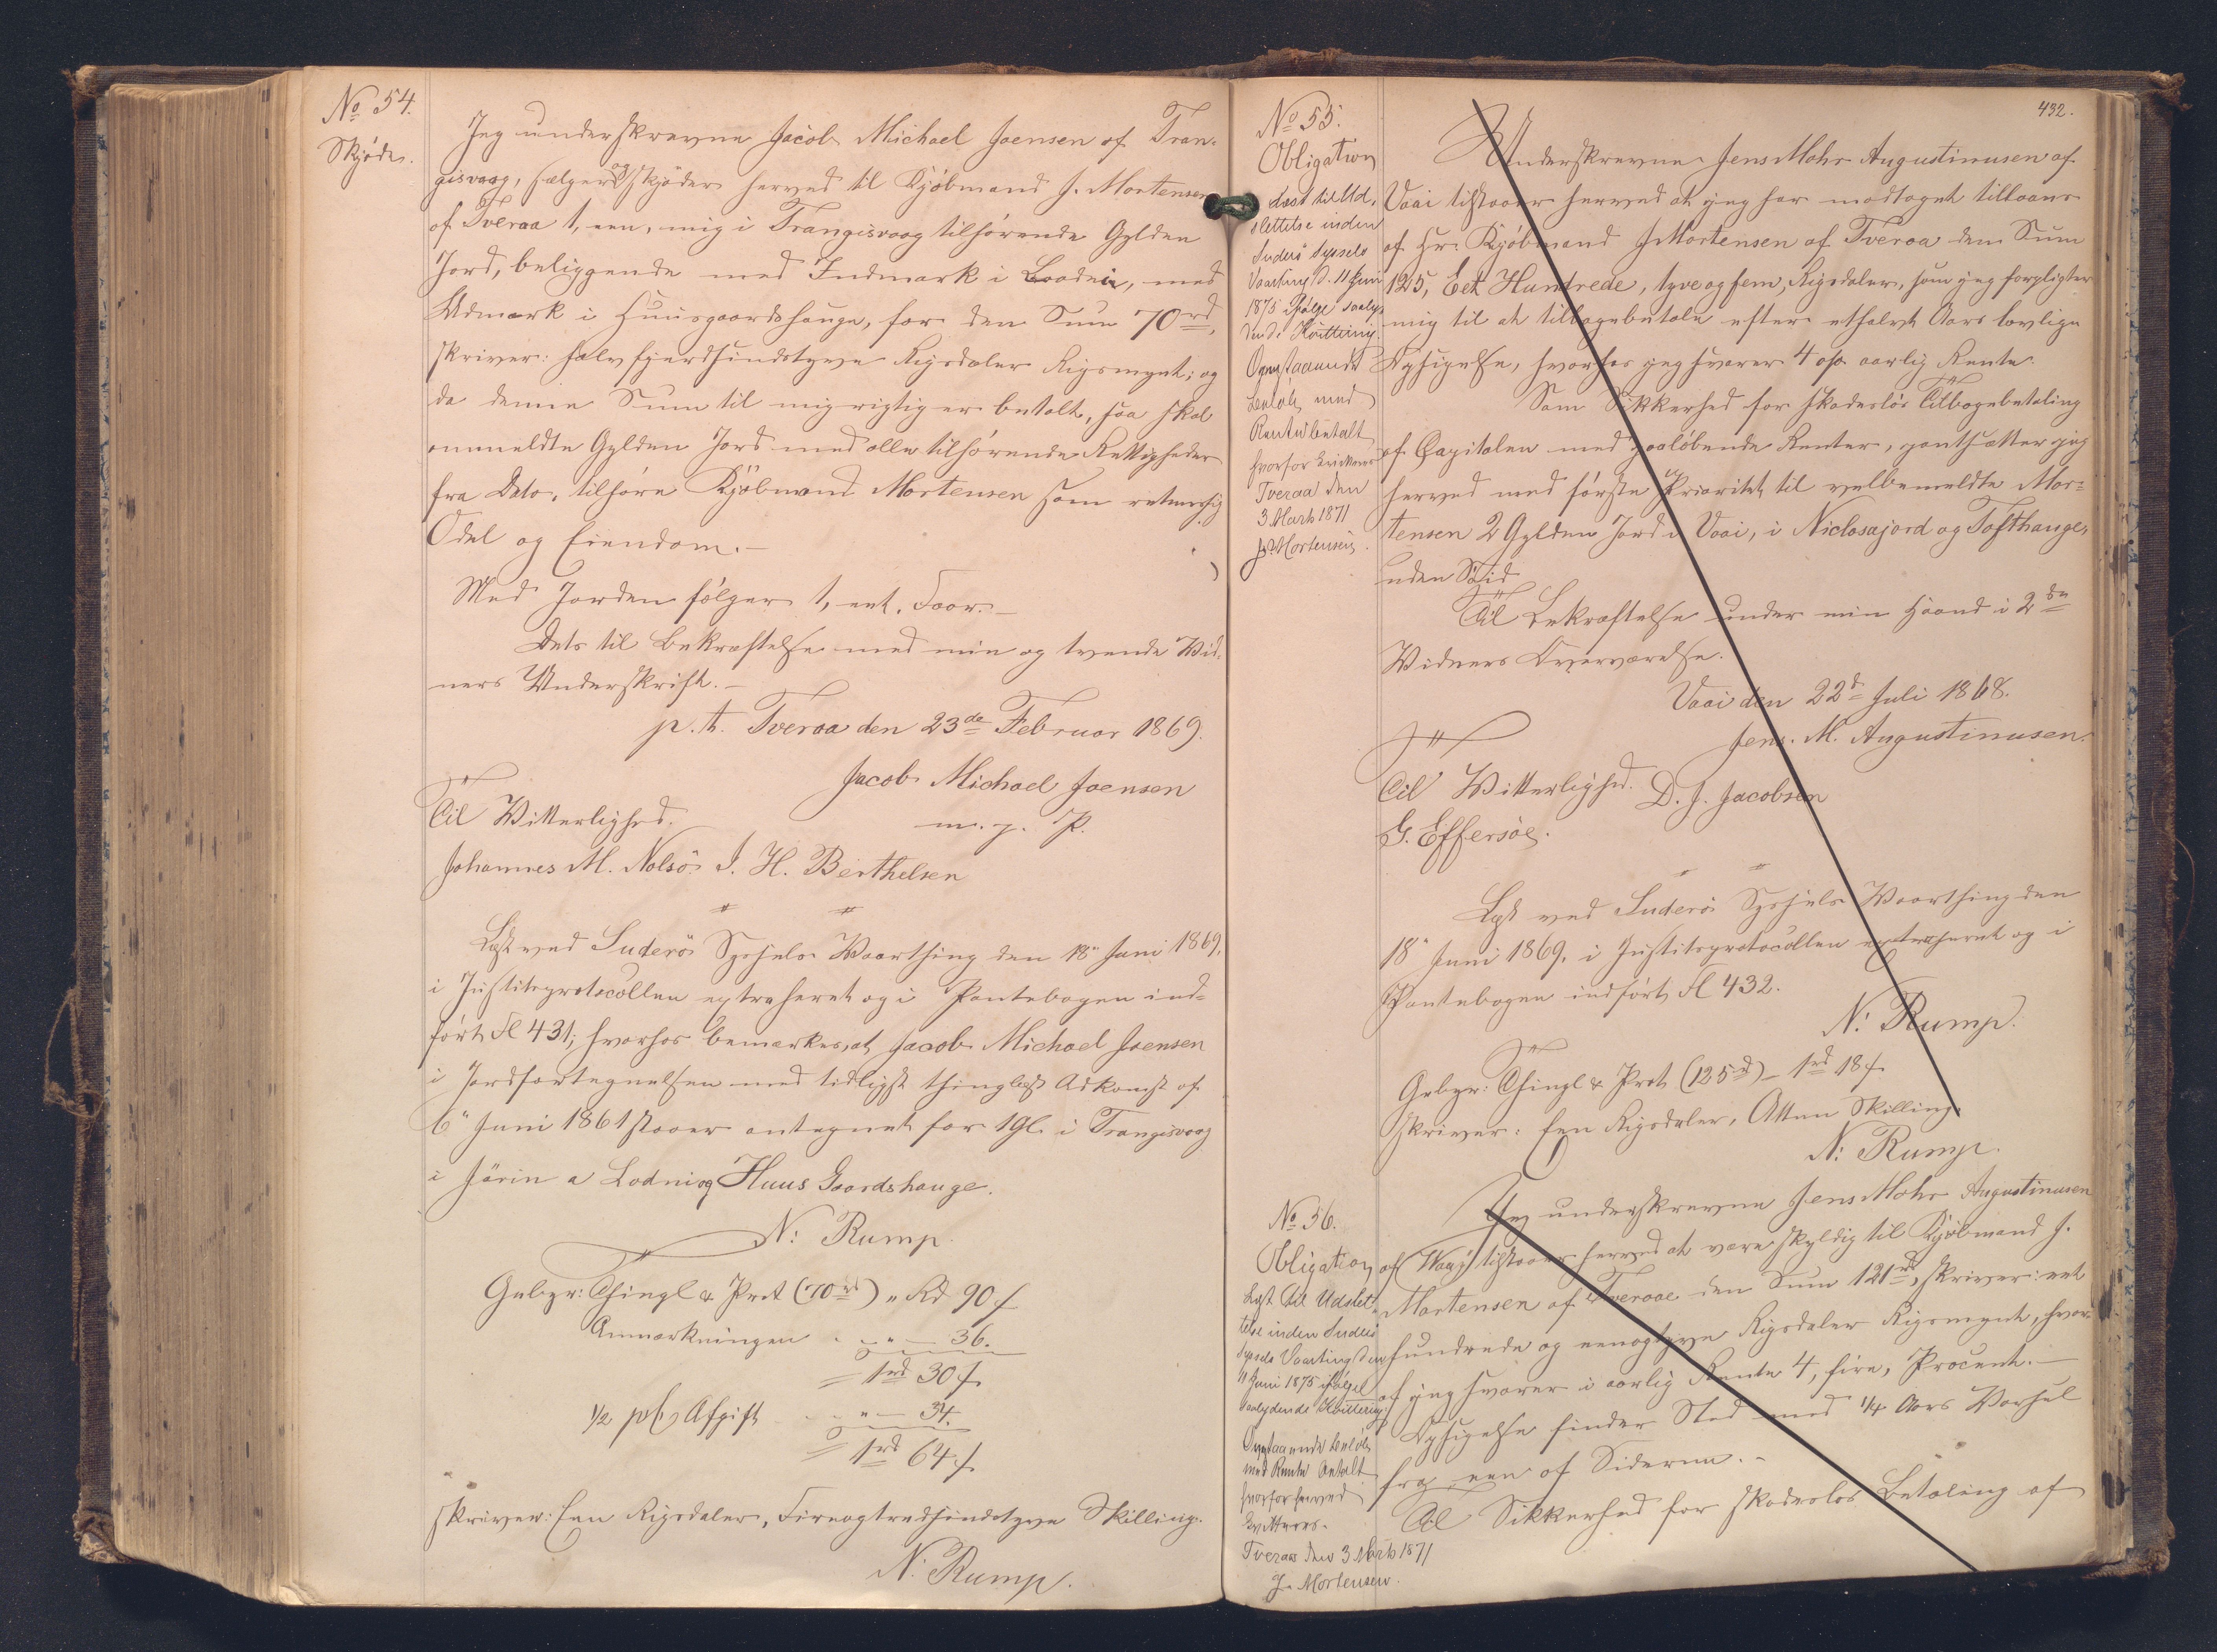 No 54.
Skjöde.
Jeg underskrevne Jacob Michael Joensen af Tran-
gisvaag, sælger og skjöder herved til Kjöbmand J. Mortensen
af Tveraa 1, een, mig i Trangisvaag tilhörende Gylden
Jord, beliggende med Indmark i Loodni, med
Udmark i Huusgaardshauge, for den Sum 70 rd,
skriver: halvfjerdsindstyve Rigsdaler Rigsmynt; og
da denne Sum til mig rigtig er betalt, saa skal
ommeldte Gylden Jord med alle tilhörende Rettigheder
fra Dato, tilhöre Kjöbmand Mortensen som retmæssig
Odel og Eiendom.-
Med Jorden fölger 1, eet, Foor.-
Dets til Bekræftelse med min og tvende Vid-
ners Underskrift.-
p. t. Tveraa den 23de Februar 1869.
Jacob Michael Joensen
m. p. P.
Til Vitterlighed.
Johannes M. Nolsö J. H. Berthelsen
Læst ved Suderö Syssels Vaarthing den 18" Juni 1869,
i Justitsprotocollen extraheret og i Pantebogen ind-
fört Fl 431; hvorhos bemærkes, at Jacob Michael Joensen
i Jordfortegnelsen med tidligst thinglæst Adkomst af
6" Juni 1861 staaer antegnet for 1 Gl. i Trangisvaag
i Járin a Lodni og Huus Gaardshauge.
N: Rump.
Gebyr: Thingl & Prot (70 rd) " Rd 90 f
Anmærkningen " " — 36.
= 1 rd 30 f
1/2 pCt Afgift " — 34.
= 1 rd 64 f.
skriver: Een Rigsdaler, Fireogtredsindstyve Skilling.
N. Rump.
432.
No 55.
Obligation
Læst til Ud-
slettelse inden
Suderö Syssels
Vaarting d. 11 Juni
1875 ifölge saaly-
dende Kvittering:
Ovenstaaende
Belöb med
Renter betalt
hvorfor kvitteres
Tveraa den
3 Marts 1871
J. Mortensen.
Underskrevne Jens Mohr Augustinusen af
Vaai tilstaaer herved at jeg har modtaget tillaans
af Hr. Kjöbmand J Mortensen af Tveraa den Sum
125, Eet Hundrede, tyve og fem, Rigsdaler, som jeg forpligter
mig til at tilbagebetale efter et halvt Aars lovlige
Opsigelse, hvorhos jeg svarer 4 o/o aarlig Rente.
Som Sikkerhed for skadeslös Tilbagebetaling
af Capitalen med paalöbende Renter, pantsætter jeg
herved med förste Prioritet til velbemeldte Mor-
tensen 2 Gylden Jord i Vaai, i Niclosajord og Tofthauge,
uden Söid
Til Bekræftelse under min Haand i 2de
Vidners Overværelse.
Vaai den 22d Juli 1868.
Jens. M. Augustinusen.
Til Vitterlighed. D. J. Jacobsen
G. Effersöe.
Læst ved Suderö Syssels Vaarthing den
18" Juni 1869, i Justitsprotocollen extraheret og i
Pantebogen indfört Fl 432.
N: Rump.
Gebyr: Thingl & Prot (125 rd) - 1 rd 18 f.
skriver: Een Rigsdaler, Atten Skilling.
N: Rump.
No 56.
Obligation
Læst til Udslet-
telse inden Suderö
Syssels Vaarting den
11 Juni 1875 ifölge
saalydende Kvittering:
Ovenstaaende Belöb
med Renter betalt
hvorfor herved
kvitteres.
Tveraa den 3 Marts 1871
J. Mortensen.
Jeg underskrevne Jens Mohr Augustinusen
af Waaj tilstaaer herved at være skyldig til Kjöbmand J.
Mortensen af Tveraae den Sum 121 rd, skriver: eet
hundrede og eenogtyve Rigsdaler Rigsmynt, hvor-
af jeg svarer i aarlig Rente 4, fire, Procent.-
Opsigelse finder Sted med 1/4 Aars Varsel
fra een af Siderne.-
Til Sikkerhed for skadeslös Betaling af